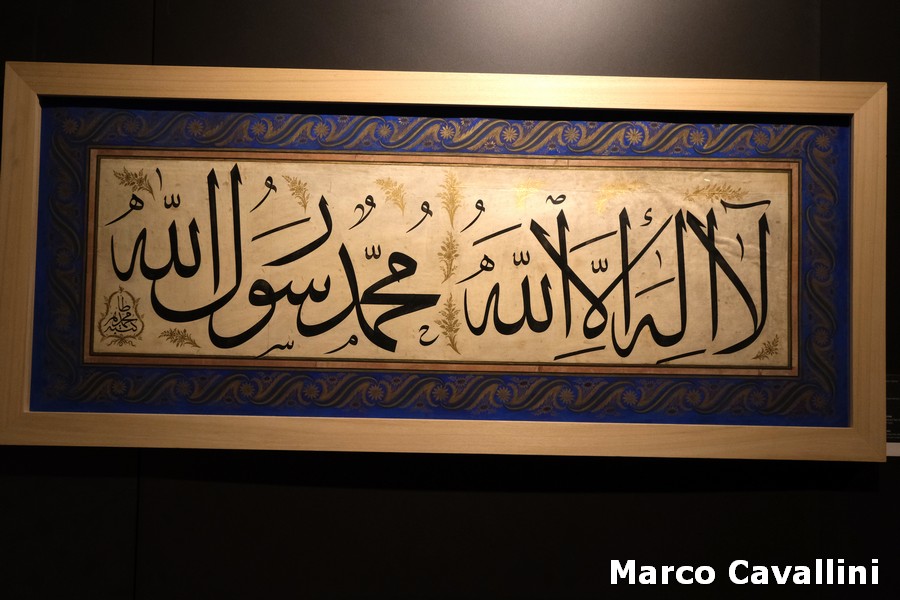 لا اله الا الله محمد رسول الله
Marco Cavallini